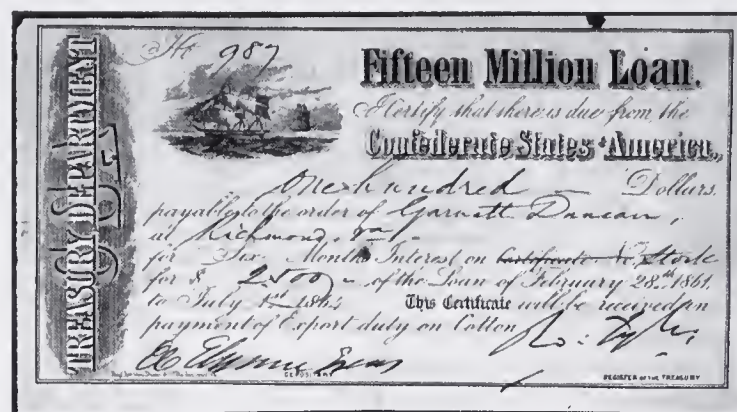 TREASURY DEPARTMENT
No 987
Fifteen Million Loan.
I Certify that there is due from the
Confederate States of America,
One hundred Dollars
payable to the order of Garnett Duncan,
at Richmond, Va
for Six Months Interest on Certificate No Stock
for $ 2500 - of the Loan of February 28th 1861,
to July 1st 1864 This Certificate will be received in
payment of Export duty on Cotton
Ro: Tyler
DEPOSITARY
REGISTER OF THE TREASURY